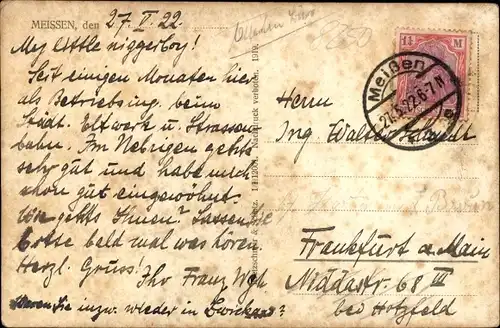 MEISSEN, den 27. V. 22.
My little niggerboy!
Seit einigen Monaten hier
als Betriebsing. beim
Städt. Eltwerk u. Strassen
bahn. Im Uebrigen gehts
sehr gut und habe mich
schon gut eingewöhnt.
Wie gehts Ihnen? Lassen Sie
bitte bald mal was hören.
Herzl. Gruss! Ihr Franz
Waren Sie inzw. wieder in Zwickau?
Nachdruck verboten. 1919.
1½ M
Meißen
27.5.22.6-7N
Herrn
Ing Walther
Frankfurt a Main
Niddastr. 68 III
bei Hotzfeld